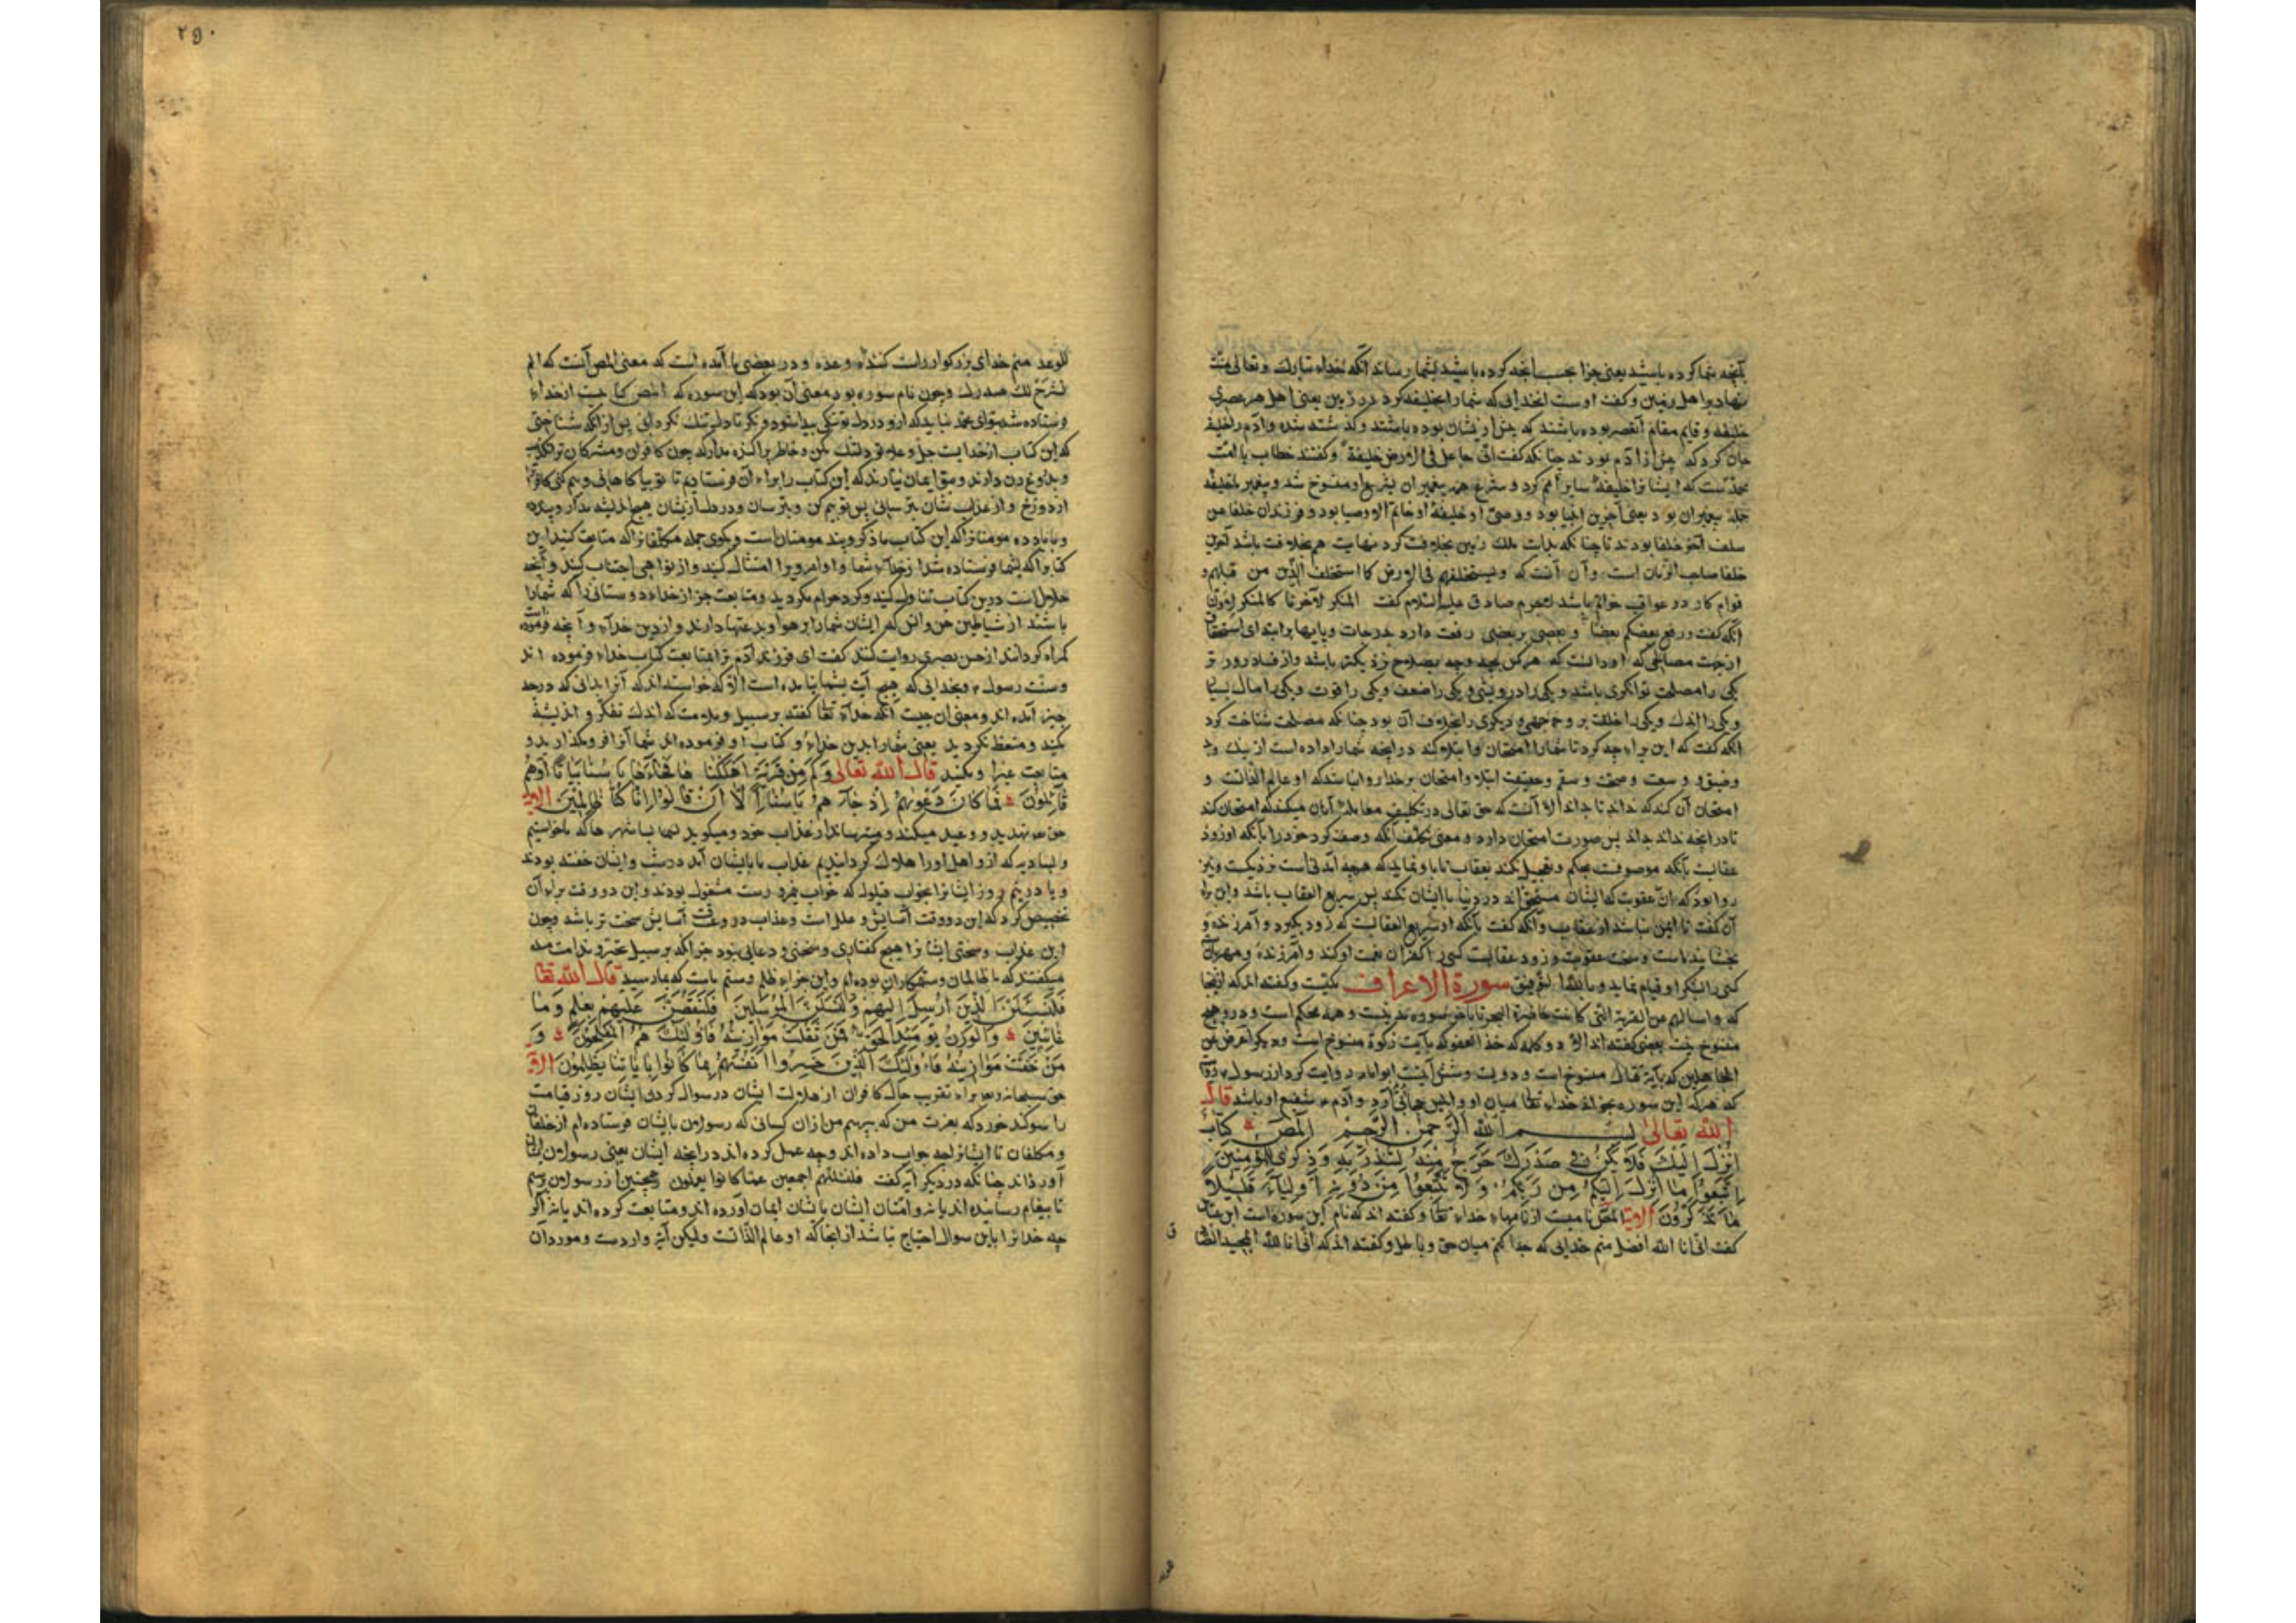 بآنچه شما کرده باشید یعنی جزا بحسب آنچه کرده باشید بشما رساند آنگه خداء تبارک وتعالی منّت
نهاد بر اهل زمین وگفت اوست آنخدایی که شما را خلیفه کرد در زمین یعنی اهل هر عصری
خلیفه و قایم مقام آنقصر بوده باشند که پیش از یشان بوده باشند وگذشته شده وآدم را خلیفه
جان کرد که پیش از آدم بودند چنانکه گفت انّی جاعل فی الارض خلیفة وگفتند خطاب با امّت
محمّدست که ایشانرا خلیفه سایر امم کرد و شرع همه پیغمبران بشرع او منسوخ شد و پیغمبر ما خلیفه
جمله پیغمبران بود یعنی آخرین انبیا بود و وصیّ او خلیفه او خاتم الاوصیا بود و فرزندان خلفا من
سلف آخر خلفا بودند تا چنانکه بدایت ملک زمین بخلافت کرد نهایت هم بخلافت باشد
خلفا صاحب الزمان است وآن آنست که ویستخلفهم فی الارض کما استخلف الّذین من قبلهم و
قوام کار در عواقب خواتم باشد لاجرم صادق علیه السّلام گفت المنکر لآخرنا کالمنکر لاوّلنا
آنگه گفت ورفع بعضکم بعضا و بعضی بر بعضی رفعت دارد بدرجات و پایها بر ابتدای استحقاق
از جهت مصالحی که او دانست که هر کس بچه وجه بصلاح نزدیکتر باشد واز فساد دورتر
یکی را مصلحت توانگری باشد ویکی را درویشی ویکی را ضعف ویکی را قوّت ویکی را مال بسیار
ویکی را اندک ویکی را خلقت بر وجهی ودیگری را بخلاف آن بود چنانکه مصلحت شناخت کرد
آنگه گفت که این براء چه کرد تا شما را امتحان وابتلا کند در آنچه شما را داده است از نیک وبد
وضیق و وسعت وصحّت وسقم وحقیقت ابتلا وامتحان بر خدا روا نباشد که او عالم الذّاتست و
امتحان آن کند که نداند تا بداند الّا آنست که حق تعالی در تکلیف معامله آنان میکند که امتحان کند
تا در آنچه نداند بداند پس صورت امتحان دارد ومعنی تکلیف آنگه وصف کرد خود را بآنکه او زود
عقابست بآنکه موصوفست بحلم وتعجیل نکند بعقاب
روا بود که آن عقوبت که ایشان مستحق اند در دنیا با ایشان نکند پس سریع العقاب باشد واین
آن گفت تا ایمن نباشند از عقاب وآنگه گفت بآنکه او سریع العقابست که زود بگیرد وآمرزنده و
بخشاینده است وسخت عقوبت وزود عقابست کسی را کفران نعمت او کند وآمرزنده ومهربان
کسی را بشکر او قیام نماید وبالله التوفیق سورة الاعراف مکّیست وگفته اند که از آنجا
که واسالهم عن القریة التی کانت حاضرة البحر تا بآخر سوره مدنیست وهمه محکم است ودرو هیچ
منسوخ نیست بعضی گفته اند الّا دو کلمه که خذ العفو که بآیت زکوة منسوخ است ودیگر اعرض عن
الجاهلین که بآیة قتال منسوخ است و دویست وشش آیتست ابوامامه روایت کرد از رسول
که هر که این سوره بخواند خداء تعالی میان او وابلیس حجابی آرد وآدم شفیع او باشد قال
الله تعالی بسم الله الرّحمن الرّحیم المص کتاب
انزل الیک فلا یکن فی صدرک حرج منه لتنذر به وذکری للمؤمنین
اتّبعوا ما انزل الیکم من ربّکم ولا تتّبعوا من دونه اولیاء قلیلا
ما تذکّرون الایة المص نامیست از نامهاء خداء تعالی وگفته اند که نام این سوره است ابن عباس
گفت انّی انا الله افضل منم خدایی که جدا کنم میان حق وباطل وگفته اند که انّی انا الله المجید الصّادق
۲۹۰
للوعد منم خدای بزرگوار راست کننده وعده و در بعضی ما آمده است که معنی المص آنست که الم
نشرح لک صدرک وچون نام سوره بود معنی آن بود که این سوره که المص کتابیست از خداء
فرستاده شد بتو ای محمّد نباید که از و در دل تو تنگی پیدا شود ونگر تا دلتنگ نگردانی پس از آنکه شناختی
که این کتاب از خدایست جل وعلا تو دلتنگ مکن وخاطر پراگنده مدار که چون کافران ومشرکان
وبدروغ زدن دارند وبتو ایمان نیارند که این کتاب را براء آن فرستادیم تا تو بیاگاهانی وبیم کنی
از دوزخ واز عذاب شان بترسانی پس تو بیم کن وبترسان ودر دل از یشان هیچ اندیشه مدار وپند ده
ویاد ده مومنانرا که این کتاب یاذکر وپند مومنان است وبگوی جمله مکلّفانرا که متابعت کنید این
کتابرا که بشما فرستاده شد از خداء شما واوامر ویرا امتثال کنید واز نواهی اجتناب کنید وآنچه
حلال است درین کتاب تناول کنید وگرد حرام مگردید ومتابعت جز از خداء دوستانی را که شما را
باشند از شیاطین جن وانس که ایشان شما را بر هوا وبدعتها دارند واز دین خداء وآنچه فرموده
گمراه گردانند از حسن بصری روایت کنند گفت ای فرزند آدم ترا متابعت کتاب خداء فرموده اند
وسنّت رسول وبخدایی که هیچ آیت بشما نیامده است الّا که خواسته اند که آنرا بدانی که در چه
چیز آمده اند ومعنی آن چیست آنگه خداء تعالی گفته بر سبیل وملامت که اندک تفکّر واندیشه
میکنید ومتّعظ نگردید یعنی شما را بدین خداء وکتاب او فرموده اند شما آنرا فرو مگذارید و
متابعت غیرا ومکنید قال الله تعالی وکم من قریة اهلکناها فجاءها باسنا بیاتا اوهم
قائلون فما کان دعویهم اذ جاءهم باسنا الّا ان قالوا انّا کنّا ظالمین الایة
حق تهدید ووعید میکند ومیترساند از عذاب خود ومیگوید ای بسا شهرها که ما خواستیم
وبسا دیه که از و اهل او را هلاک گردانیدیم عذاب ما بایشان آمد در شب وایشان خفته بودند
ویا در نیم روز ایشانرا بخواب قیلوله که خواب نیمروز است مشغول بودند واین دو وقت براء آن
تخصیص کرد که این دو وقت آسایش و علل است وعذاب در وقت آسایش سخت تر باشد وچون
این عذاب وسختی ایشانرا هیچ گفتاری وسخنی ودعایی نبود جز آنکه بر سبیل تحسّر وندامت
میگفتند که ما ظالمان وستمکاران بوده ایم واین جزاء ظلم وستم ماست که بما رسید قال الله تعالی
فلنسئلنّ الّذین ارسل الیهم ولنسئلنّ المرسلین فلنقصّنّ علیهم بعلم وما
غائبین والوزن یومئذ الحقّ فمن ثقلت موازینه فاولئک هم المفلحون و
من خفّت موازینه فاولئک الّذین خسروا انفسهم بما کانوا بآیاتنا یظلمون الایة
حق سبحانه وتعالی براء تقریب حال کافران از هلاکت ایشان در سوال کردن ایشان روز قیامت
را سوگند خورد که بعزّت من که بپرسم من از آن کسانی که رسول من بایشان فرستاده ام از خلقان
ومکلّفان تا ایشانرا چه جواب داده اند وچه عمل کرده اند در آنچه ایشان یعنی رسول من بایشان
آورده اند چنانکه در دیگر آیه گفت فلنسئلنّهم اجمعین عمّا کانوا یعملون وهمچنین از رسول من پرسم
تا پیغام رسانیده اند یا نه وامّتان ایشان بایشان ایمان آورده اند ومتابعت کرده اند یا نه اگر
چه خدایرا باین سوال احتیاج نباشد از آنجا که او عالم الذّاتست ولیکن آیة واردست ومورد آن